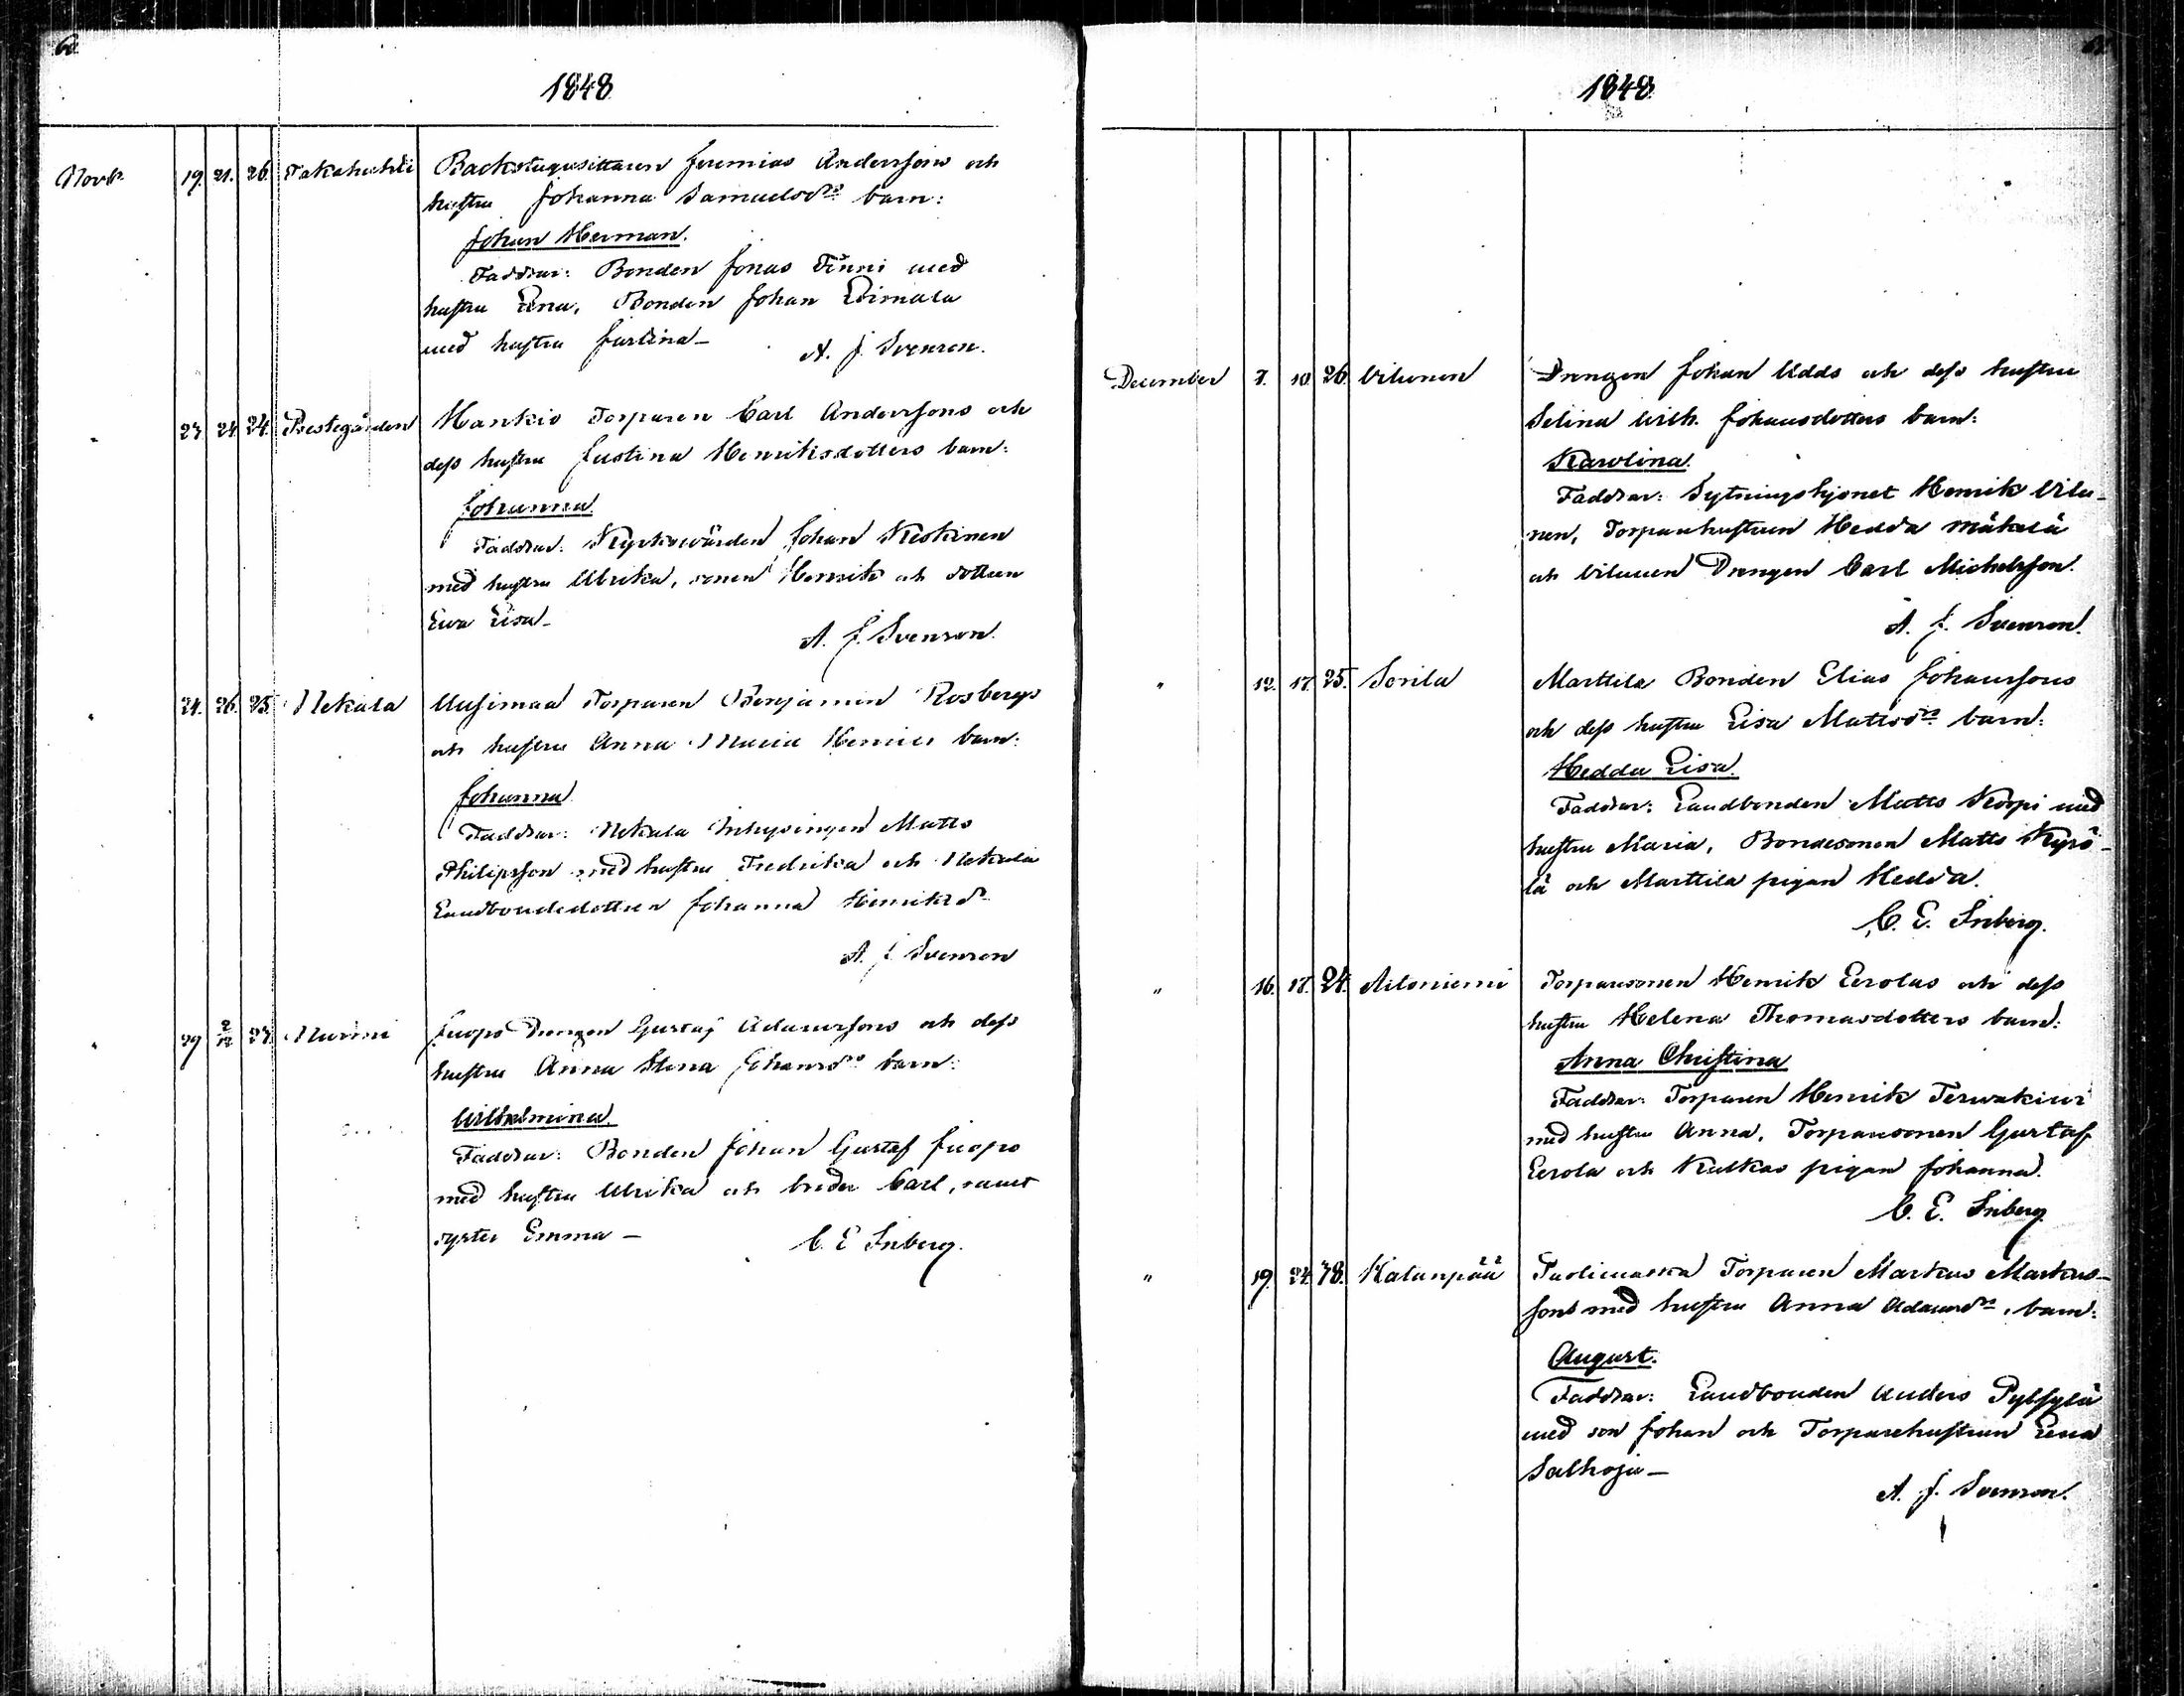 1848
Novb. 19. 21. 26. Takahuhti Backstugusittaren Jeremias Anderssons och
hustru Johanna Samuelsdrs barn:
Johan Herman.
Faddrar: Bonden Jonas Finni med
hustru Lena, Bonden Johan
med hustru
A. J. Svenson.
" 23 24 24. Prestegården Hankio Torparen Carl Anderssons och
dess hustru Justina Henriksdotters barn:
Johanna
Faddrar: Kyrkovärden Johan Keskinen
med hustru Ulrika, sonen Henrik och dottren
Eva Lisa
A. J. Svenson.
" 24. 26. 25. Nekala Uusimaa Torparen Benjamin Rosbergs
och hustru Anna Maria barn:
Johanna
Faddrar: Nekala Inhysingen Matts
Philipsson med hustru Fredrika och Nekala
Landbondedottren Johanna Henriksdr
A. J. Svenson
" 29 2/12 23. Nurmi Juopo Drengen Gustaf Adamssons och dess
hustru Anna Stena Johansdrs barn:
Wilhelmina.
Faddrar: Bonden Johan Gustaf Juopo
med hustru Ulrika och broder Carl, samt
syster Emma –
C. E. Inberg.
1848
December 7. 10 26. Vilunen Drengen Johan Udds och dess hustru
Selina Wilh. Johansdotters barn:
Karolina.
Faddrar: Sytningshjonet Henrik Vilu-
nen, Torparehustrun Hedda Mäkelä
och Vilunen Drengen Carl Michelsson.
A. J. Svenson.
" 12. 17. 25. Sorila Marttila Bonden Elias Johanssons
och dess hustru Lisa Mattsdrs barn:
Hedda Lisa.
Faddrar: Landbonden Matts Korpi med
hustru Maria, Bondesonen Matts Kyrö-
lä och Marttila pigan Hedda.
C. E. Inberg.
" 16. 17. 24. Aitoniemi Torparesonen Henrik Eerolas och dess
hustru Helena Thomasdotters barn:
Anna Christina
Faddrar: Torparen Henrik Terwakivi
med hustru Anna, Torparesonen Gustaf
Eerola och Kulkas pigan Johanna.
C. E. Inberg
" 19. 24. 38. Hatanpää Torparen Markus Markus-
sons med hustru Anna Adamsdrs barn:
August.
Faddrar: Landbonden Anders Pylsylä
med son Johan och Torparehustrun Lena
Salhoja –
A. J. Svenson.